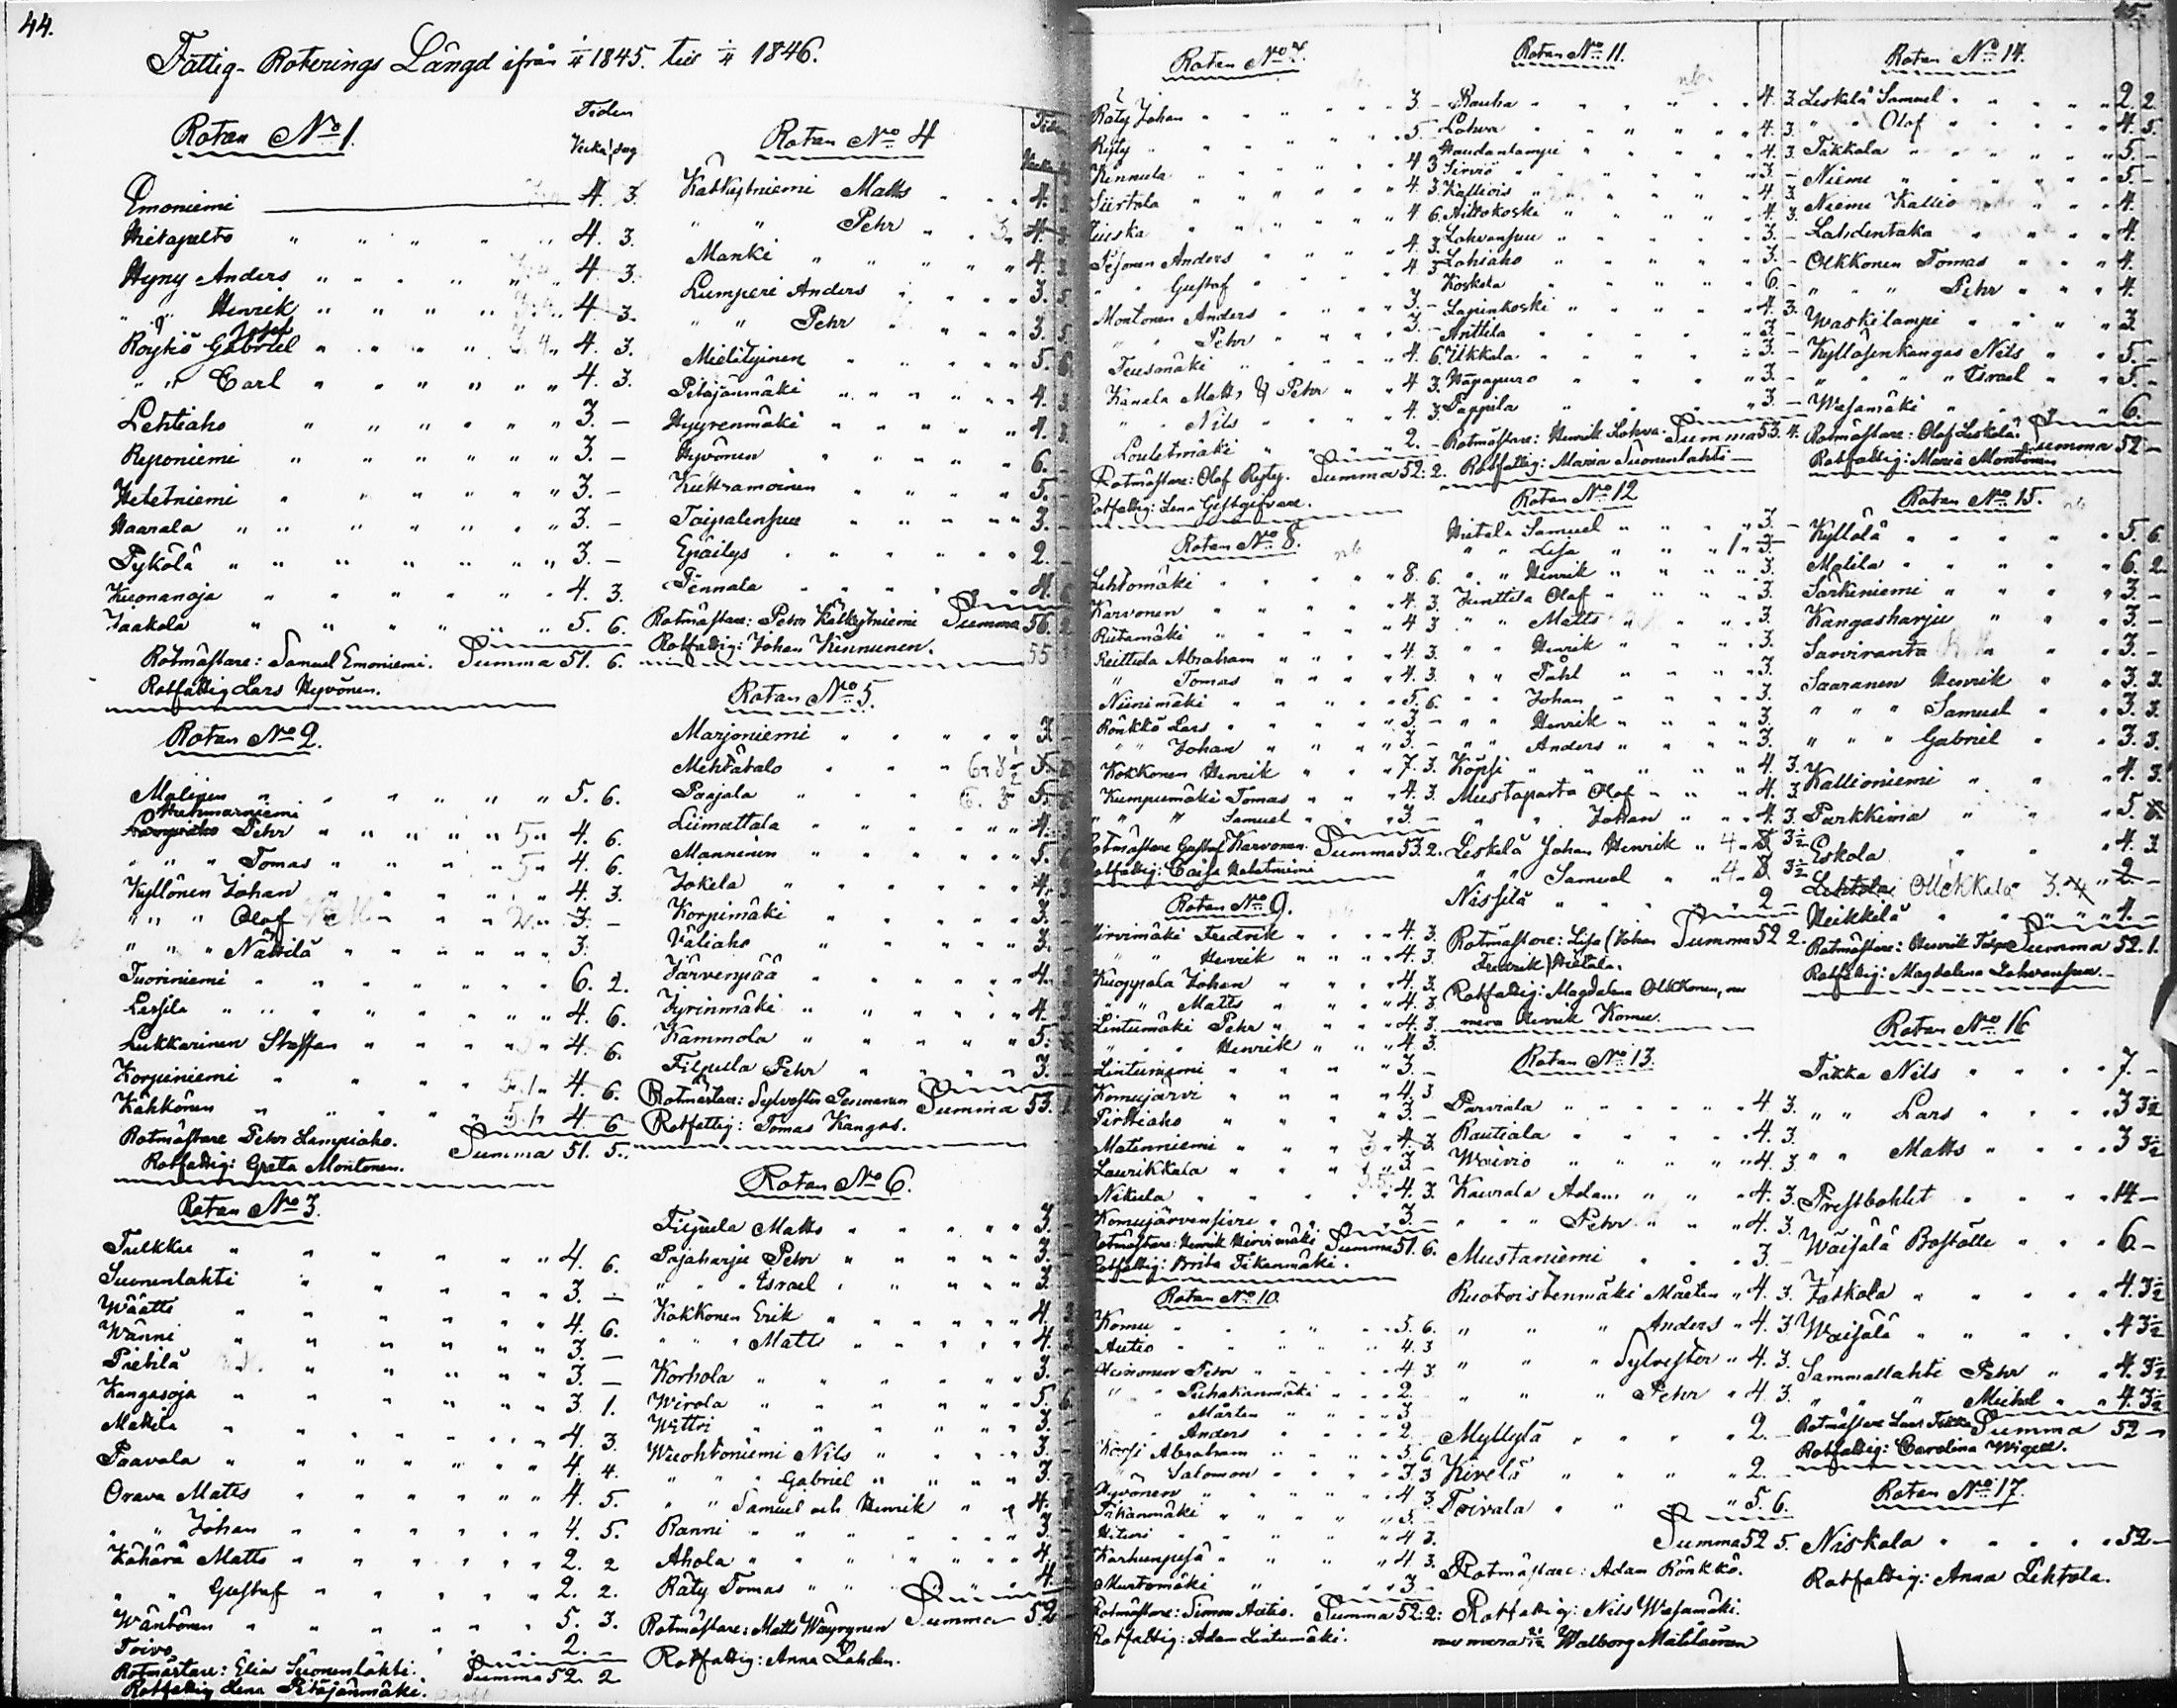 44.
Fattig-Roterings Längd ifrån 1/4 1845. till 1/4 1846.
Tiden
Rotan No 1.
Vecka dag
Emoniemi 4. 3.
Hietapelto " " " " " 4. 3.
Hyny Anders " " " " " 4. 3.
" " Henrik " " " " " 4. 3.
Josef
Röykö Gabriel " " " " 4. 3.
" " Carl " " " " " " 4. 3.
Lehtiaho " " " " " " 3. –
Reponiemi " " " " " " 3. –
Heletniemi " " " " " " 3. –
Haarala " " " " " " " 3. –
Pykölä " " " " " " " 3. –
Kuonanoja " " " " " " 4. 3.
Jaakola " " " " " " 5. 6.
Rotmästare: Samuel Emoniemi. Summa 51. 6.
Rotfattig Lars Hyvönen.
Rotan No 2.
Malinen " " " " " " 5. 6.
Pehr " " " " " 5 " 4. 6.
" " " Tomas " " " " 5 " 4. 6.
Kyllönen Johan " " " " " 4. 3.
" " " Olof " " " 2. " 3. –
" " " Nättilä " " " " " " 3.
Tuoriniemi " " " " " " " 6. 2.
Lessila " " " " " " " " 4. 6.
Lukkarinen Staffan " " " " " " 4. 6.
Korpiniemi " " " " 5. 1 " 4. 6.
Käkkönen " " " " " 5. 1 " 4. 6
Rotmästare Pehr Lampiaho. Summa 51. 5.
Rotfattig: Greta Montonen.
Rotan No 3.
Tulkku " " " " " " " 4. 6.
Suonenlahti " " " " " " 3. –
Wäätti " " " " " " " 4. 6.
Wänni " " " " " " " 3. –
Pietilä " " " " " " 3. –
Kangasoja " " " " " " " 3. 1.
Mattila " " " " " " " 4. 3.
Paavala " " " " " " " 4. 4.
Orava Matts " " " " " " 4. 5.
" " Johan " " " " " " 4. 5.
Kähärä Matts " " " " " " 2. 2
" " Gustaf " " " " " " 2. 2.
Wäntönen " " " " " " 5. 3.
Toivo " " " " 2. –
Rotmästare: Elias Suonenlahti. Summa 52. 2
Rotfattig Lena Petäjänmäki.
Rotan No 4
Kätkytniemi Matts " " 4.
" " Pehr " " 3. 4.
Manki " " " " " " 4.
Lumperi Anders " " " " 3. 5
" " Pehr " " " " 3. 5
Mielityinen " " " " " 5. 6
Petäjänmäki " " " " " 4. 3
Hyyrenmäki " " " " " " 4. 3.
Hyvönen " " " " " " 6. –
Kuttramoinen " " " " " 5. –
Taipalensuu " " " " " " 3. –
Epäilys " " " " " " 2. –
Tennala " " " " " 4. 6
Rotmästare: Pehr Kätkytniemi Summa 56. 2
Rotfattig: Johan Kinnunen. 55
Rotan No 5.
Marjoniemi " " " " " 3 –
Mehtätalo " " "
Paajala " " " 6. 3 5.
Liimattala " " " " " " 4.
Manninen " " " " " " 5. 6
Jokela " " " " " " 4.
Korpimäki " " " " " 3.
Väliaho " " " " " 3.
Järvenpää " " " " " 4.
Jyrinmäki " " " " " " 4. 3
Kämmola " " " " " 5.
Filpulla Pehr " " " " 3. –
Rotmästare: Sylvester Summa 53.
Rotfattig: Tomas Kangas.
Rotan No 6.
Filpula Matts " " " " " 3.
Pajaharju Pehr " " " " " 3.
" " " Israel " " " " " 3.
Kokkonen Erik " " " " " 4.
" " " Matts " " " " 4.
Korhola " " " " " " 3.
Wirola " " " " " " 5. 6
Wittri " " " " " " 3.
Wuohtoniemi Nils " " " " 3.
" " " Gabriel " " " " " 3.
" " Samuel och Henrik " " 4.
Ranni " " " " " " " 3.
Ahola " " " " " " " 4.
Räty Tomas " " " " " 4.
Rotmästare: Matts Wäyrynen Summa 52
Rotfattig: Anna Lahden.
Rotan No 7.
Räty Johan " " " " " " 3. –
Ryty " " " " " " " 5. –
Kinnula " " " " " " 4 3
Siirtola " " " " " " 4. 3.
" " " " " " 4 6.
Pesonen Anders " " " " 4. 3.
" " Gustaf " " " " 4 3
Montonen Anders " " " " 3. –
" " Pehr " " " " 3. –
Teusmäki " " " " " 4. 6.
Kanala Matts & Pehr " " 4 3.
" " Nils " " " " 4. 3.
Louletmäki " " " " 2. –
Rotmästare: Olof Ryty. Summa 52. 2.
Rotfattig: Lena Gästgifvare.
Rotan No 8.
Lehtomäki " " " " " 8. 6.
Karvonen " " " " " 4 3.
Rutamäki " " " " " 4 3
Reittula Abraham " " " " 4. 3.
" Tomas " " " " 4. 3.
Niinimäki " " " " 5. 6.
Rönkkö Lars " " " " " 3. –
" " Johan " " " " " 3. –
Kokkonen Henrik " " " 7. 3.
Kumpumäki Tomas " " " 4. 3.
" " " Samuel " " " 3. –
Rotmästare Gustaf Karvonen. Summa 53. 2.
Rotfattig: Caisa Heletniemi
Rotan No 9.
Hirvimäki Fredrik " " " 4. 3.
" " Henrik " " " 4. 3.
Kuoppala Johan " " " 4. 3
" " Matts " " " 4. 3
Lintumäki Pehr " " " 4. 3.
" " " Henrik " " " 4. 3.
Lintuniemi " " " " 3. –
Komujärvi " " " " 4. 3
Pirttiaho " " " " 3. –
Matinniemi " " " 3 " 4. 3.
Laurikkala " " " " 3 –
Nikula " " " 3. 5. " 4. 3.
Komujärvensivu " " " 3. –
Rotmästare: Henrik Hirvimäki Summa 51. 6.
Rotfattig: Brita Tikanmäki.
Rotan No 10.
Komu " " " " " 5. 6.
Autio " " " " " 4. 3
Heinonen Pehr " " " " 4 3.
" " Puhakanmäki " " " 2.
" Mårten " " " " 3
" Anders " " " " 2
Köpsi Abraham " " " " 5. 6.
" Salomon " " " " 3. 3
Hyvönen " " " " " 4 3.
Tikanmäki " " " " " 3 –
Hituri " " " " " 4 3.
Karhunpesä " " " " " 4 3.
Murtomäki " " " " 3 –
Rotmästare: Simon Autio. Summa 52: 2:
Rotfattig: Adam Lintumäki.
Rotan No 11.
Rauha " " " " " 4. 3.
Lohva " " " " " 4. 3.
Haudanlampi " " " " 4. 3.
Sirviö " " " " " 3. –
Kalliois " " " " 4. 3
Aittokoski " " " " 4. 3.
Lohvansuu " " " " 3. –
Lohiaho " " " " 3. –
Koskela " " " " 6. –
Lapinkoski " " " " 4. 3.
Anttila " " " " " 3 –
Ukkola " " " " " 3. –
Hapapuro " " " " 3. –
Pappila " " " " 3. –
Rotmästare: Henrik Lohva. Summa 53. 4.
Rotfattig: Maria Suonenlahti
Rotan No 12
Hietala Samuel " " " " 3. –
" " Lisa " " " 1 " 3. –
" " Henrik " " " " 3.
Junttila Olof " " " " 3.
" " Matts " " " 3.
" " Henrik " " " 3.
" " Påhl " " " 3.
" " Johan " " " 3.
" " Henrik " " " 3.
" " Anders " " " 3.
Köpsi " " " " " 4. 3.
Mustaparta Olof " " " 4. 3.
" " " Johan " " 4. 3
Leskelä Johan Henrik " 4 " 3 3½
" " Samuel " " 4 3 3½
Nissilä " " " " " 2 –
Rotmästare: Lisa (Johan Summa 52 2.
Fredrik) Hietala.
Rotfattig: Magdalena Olkkonen, nu
mera Henrik Komu.
Rotan No 13.
Parviala " " " " " 4 3.
Rautiala " " " " " 4. 3.
Waivio " " " " " 4. 3
Kaurala Adam " " " 4. 3.
" " " Pehr " " 4. 3.
Mustaniemi " " " 3. –
Ruotoistenmäki Mårten " 4. 3.
" " " Anders " 4. 3
" " " Sylvester " 4. 3.
" " " Pehr " 4 3.
Myllylä " " " " 2. –
Kivelä " " " " " 2. –
Toivala " " " " " 5. 6.
Summa 52 5.
Rotmästare: Adam Rönkkö.
Rotfattig: Nils Wasamäki.
nu mera Walborg Matilainen
Rotan No 14.
Leskelä Samuel " " " " " 2. 2
" " Olof " " " " 4. 5.
Takkala " " " " " " 5. –
Niemi " " " " " " 5. –
Niemi Kallio " " " " 4.
Lahdentaka " " " " 4.
Olkkonen Tomas " " " 4.
" " " Pehr " " " 4.
Waskilampi " " " " " 3
Kyllösenkangas Nils " " 5. –
" " " " Israel " " 5. –
Wasamäki " " " " " 6.
Rotmästare: Olof Leskelä. Summa 52 –
Rotfattig: Maria Montonen
Rotan No 15.
Kyllölä " " " " " 5. 6.
Matila " " " " " 6. 2.
Särkiniemi " " " " 3. –
Kangasharju " " " " 3. –
Sarviranta " " " 3. –
Saaranen Henrik " " 3. 3.
" " " Samuel " " 3. 3.
" " " Gabriel " " 3. 3.
Kallioniemi " " " 4. 3.
Parkkima " " " 5. 6.
Eskola " " " 4. 3
Lehtola Ollekkala 3. 4 " 2. –
Heikkilä " " " " " 4. –
Rotmästare: Henrik Summa 52. 1.
Rotfattig: Magdalena Lohvansuu.
Rotan No 16
Takka Nils " " " " 7. –
" " Lars " " " " 3 3½
" " Matts " " " " 3 3½
Prestbohlet " " " " 14 –
Wäisälä Boställe " " " 6 –
Jaskola " " " " " 4. 3½
Waisälä " " " " " 4 3½
Sammallahti Pehr " " 4. 3½
" " " Michel " " 4. 3½
Rotmästare Lars Takka Summa 52 –
Rotfattig: Carolina Wigell.
Rotan No 17.
Niskala " " " " " 52 –
Rotfattig: Anna Lehtola.